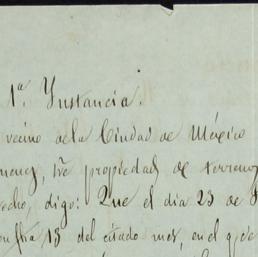 1ª. Ynstancia.
vecino de la Ciudad de México
propiedad de terreno
digo: Que el dia 23 de
13 del citado mes, en el q. e